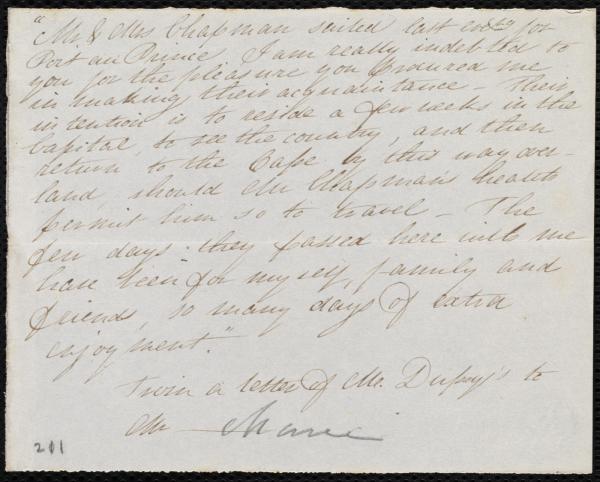 "Mr. & Mrs Chapman sailed last evg for
Port au Prince. I am really indebted to
you for the pleasure you procured me
in making their acquaintance - Their
intention is to reside a few weeks in the
Capital, to see the country, and then
return to the Cape by this way over-
land, should Mr Chapman's health
permit him so to travel - The
few days they passed here with me
have been for myself, family and
friends, so many days of extra
enjoyment."
From a letter of Mr. Dupuy's to
Mr
201